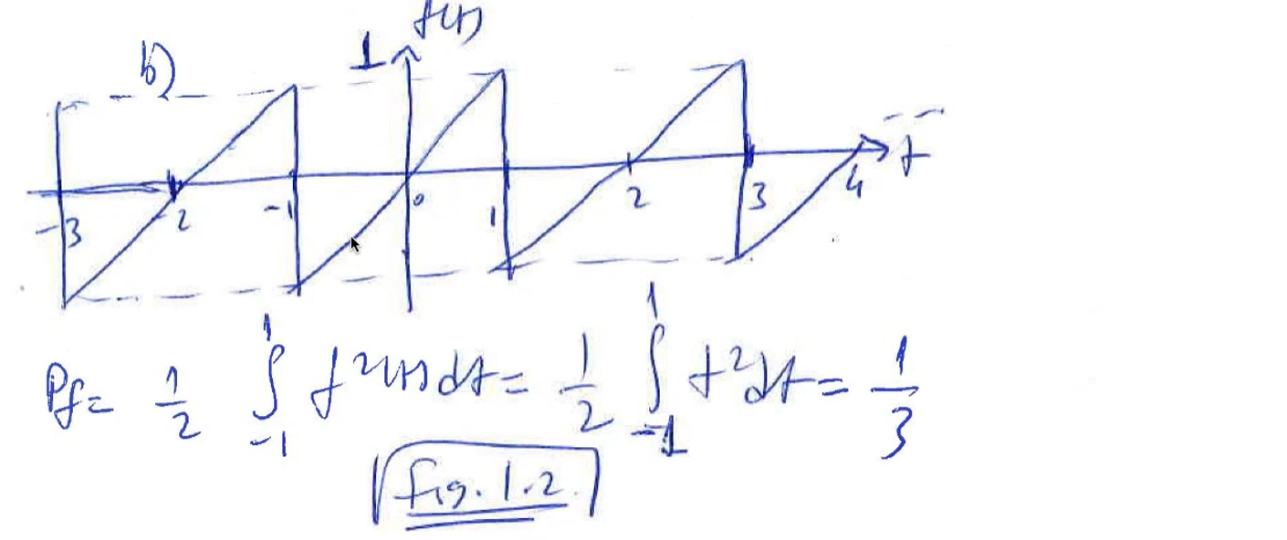 f(t)
b)
1
-3 -2 -1 0 1 2 3 4 t
Pf = 1/2 ∫_{-1}^{1} f²(t) dt = 1/2 ∫_{-1}^{1} t² dt = 1/3
fig. 1.2